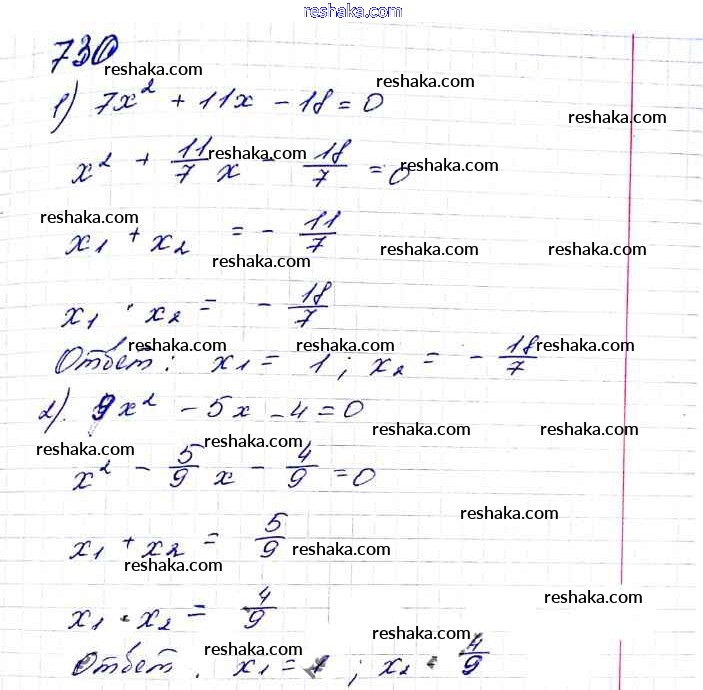 reshaka.com
730
reshaka.com
1) 7x² + 11x - 18 = 0
reshaka.com
reshaka.com
x² + 11/7 x - 18/7 = 0
reshaka.com
reshaka.com
reshaka.com
x₁ + x₂ = - 11/7
reshaka.com
reshaka.com
reshaka.com
x₁ · x₂ = - 18/7
reshaka.com
reshaka.com
reshaka.com
Ответ: x₁ = 1; x₂ = - 18/7
2). 9x² - 5x - 4 = 0
reshaka.com
reshaka.com
reshaka.com
x² - 5/9 x - 4/9 = 0
reshaka.com
x₁ + x₂ = 5/9
reshaka.com
reshaka.com
reshaka.com
x₁ · x₂ = 4/9
reshaka.com
reshaka.com
Ответ. x₁ = 1; x₂ = 4/9